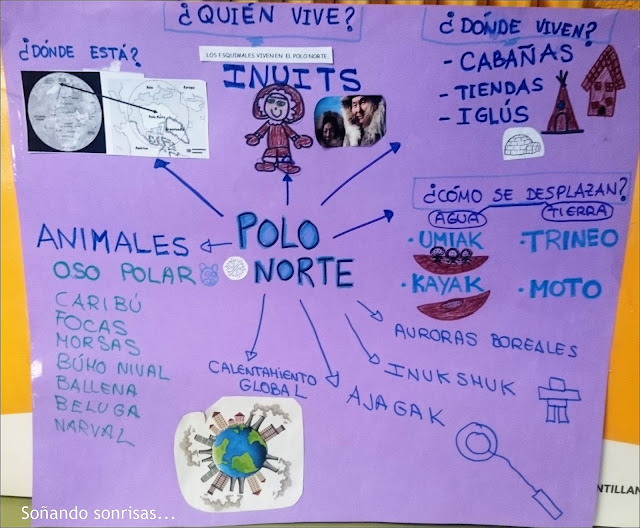 ¿QUIÉN VIVE?
LOS ESQUIMALES VIVEN EN EL POLO NORTE.
INUITS
¿DÓNDE ESTÁ?
¿DÓNDE VIVEN?
- CABAÑAS
- TIENDAS
- IGLÚS
¿CÓMO SE DESPLAZAN?
AGUA
TIERRA
· UMIAK
· TRINEO
· KAYAK
· MOTO
POLO
NORTE
ANIMALES
OSO POLAR
CARIBÚ
FOCAS
MORSAS
BÚHO NIVAL
BALLENA
BELUGA
NARVAL
CALENTAMIENTO
GLOBAL
AJAGAK
INUKSHUK
AURORAS BOREALES
NTILLAN
Soñando sonrisas...